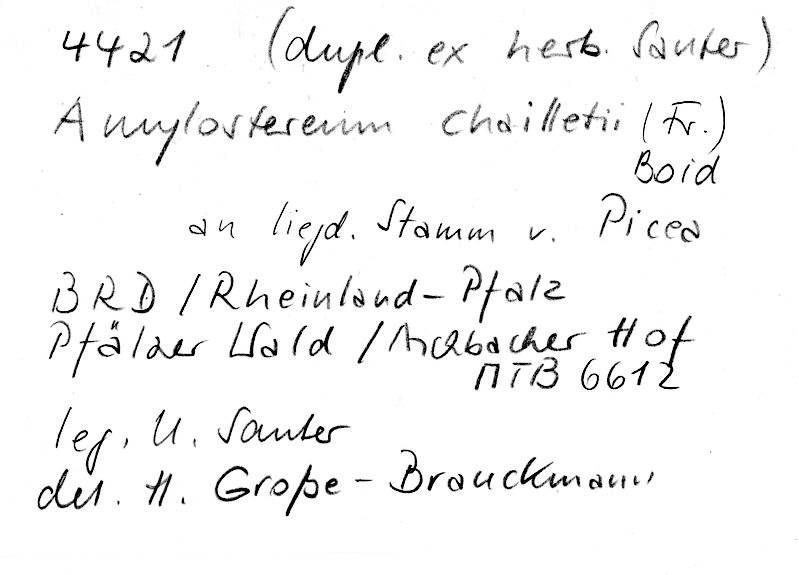 4421 (dupl. ex herb. Sauter)
Amylostereum chailletii (Fr.)
Boid
an liegd. Stamm v. Picea
BRD / Rheinland-Pfalz
Pfälzer Wald / Aschbacher Hof
MTB 6612
leg. U. Sauter
det. H. Große-Brauckmann